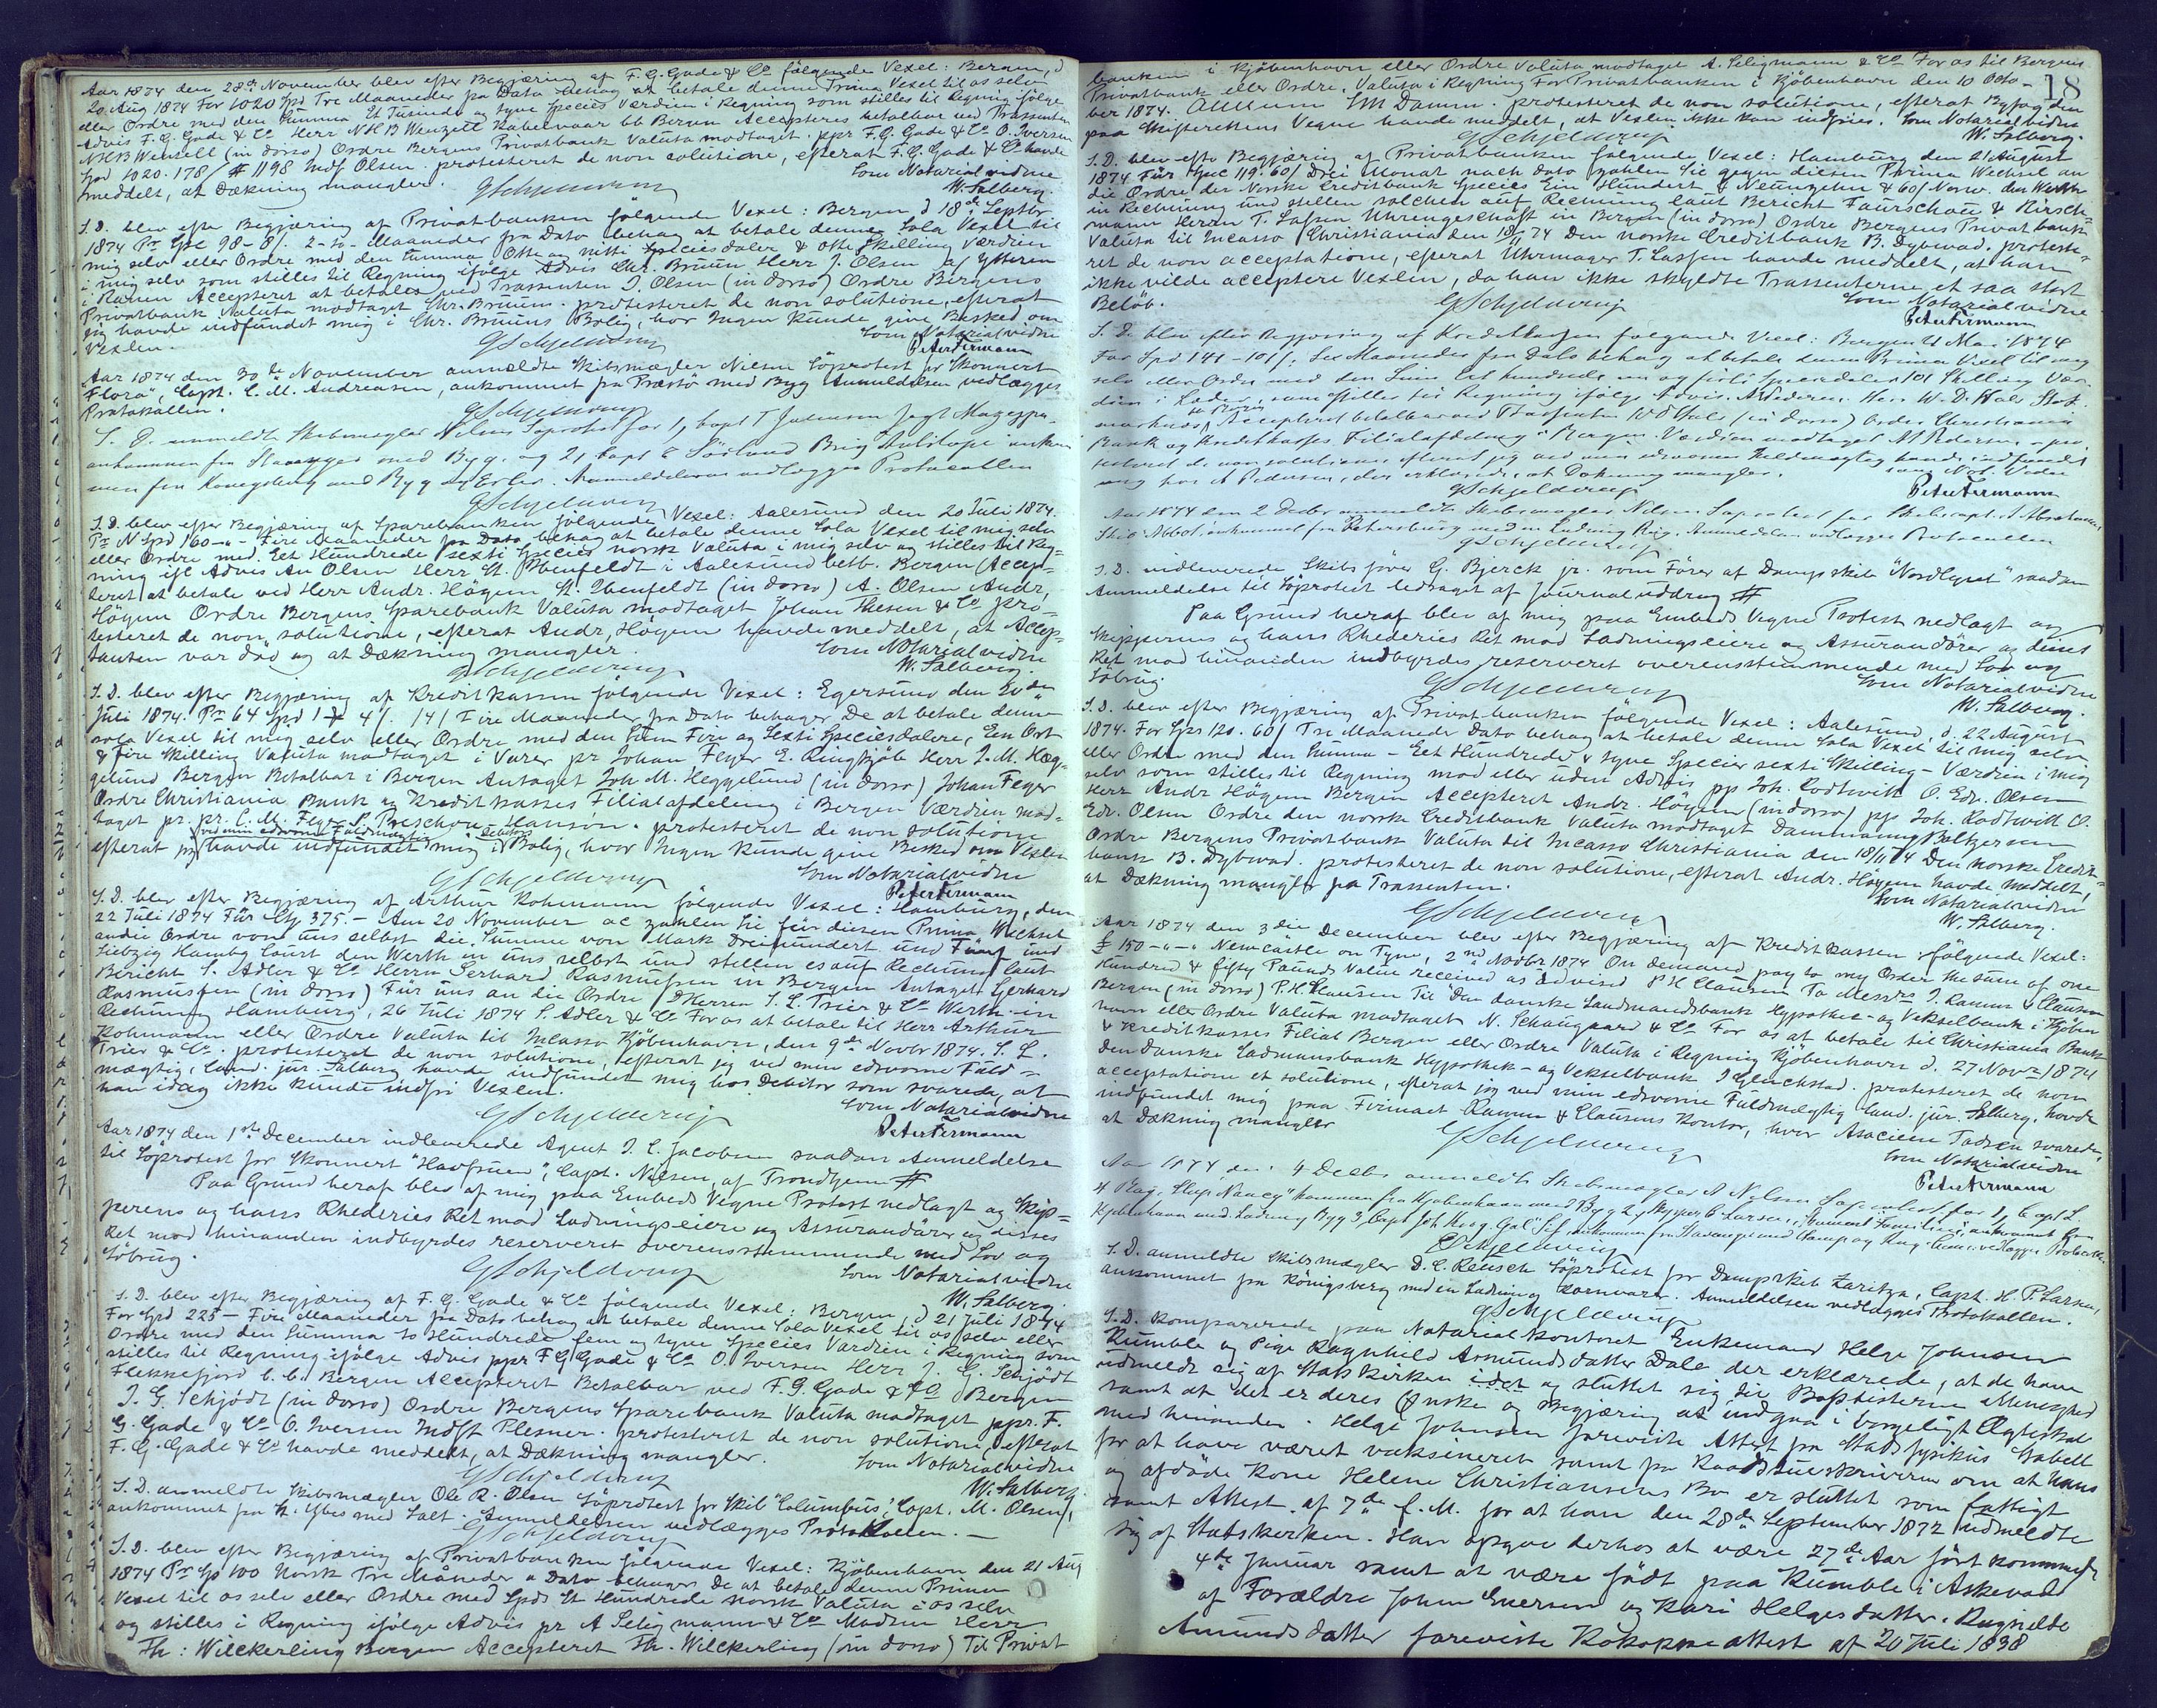 Aar 1874 den 28de November blev efter Begjæring af F. G. Gade & Co følgende Vexel: Bergen, d
20 Aug 1874 For 1020 Spd Tre Maaneder fra Dato behag at betale denne Prima Vexel til os selv
eller Ordre med den Summa Et Tusinde og tyve Species Værdien i Regning som stilles til Regning ifølge
Advis F. G. Gade & Co Herr N H B Wenzell Kabelvaag bb Bergen Accepteres betalbar ved Trassenten
N H B Wenzell (in dorso) Ordre Bergens Privatbank Valuta modtaget. ppr F. G. Gade & Co O. Iversen
Spd 1020. 178/ # 1198 Indf Olsen protesteret de non solutione, efterat F. G. Gade & Co havde
meddelt, at Dækning mangler.
GSchjelderup
Som Notarialvidne
W. Salberg.
S. D. blev efter Begjæring af Privatbanken følgende Vexel: Bergen d 18de Septbr
1874 Pr Spc 98-8/. 2-to-Maaneder fra Dato behag at betale denne Sola Vexel til
mig selv eller Ordre med den Summa Otte og nitti Speciesdaler & otte Skilling Værdien
i mig selv som stilles til Regning ifølge Advis Chr. Bruun Herr J. Olsen af Ytteren
i Ranen Accepteret at betales ved Trassenten J. Olsen (in dorso) Ordre Bergens
Privatbank Valuta modtaget Chr. Bruun. protesteret de non solutione, efterat
jeg havde indfundet mig i Chr. Bruuns Bolig, hvor Ingen kunde give Besked om
Vexlen.
GSchjelderup
Som Notarialvidne
Peter Fermann
Aar 1874 den 30te November anmeldte Skibsmægler Nilsen Söprotest for Skonnert
"Flora", Capt. C. M. Andreasen, ankommet fra Præstø med Byg Anmeldelsen vedlægges
Protokollen.
GSchjelderup
S. D. anmeldte Skibsmægler Nilsen Söprotest for 1, Capt T Jedensen Jagt Mazeppa
ankommen fra Stavanger med Byg. og 2, Capt Sörlund Brig ankom
men fra Konigsberg med Byg og Erter. Anmeldelserne vedlægges Protocollen
GSchjelderup
S. D. blev efter Begjæring af Sparebanken følgende Vexel: Aalesund den 20 Juli 1874.
Pr N Spd 160-"- Fire Maaneder fra Dato behag at betale denne Sola Vexel til mig selv
eller Ordre med Eet Hundrede sexti Species norsk Valuta i mig selv og stilles til Reg-
ning ifl Advis An Olsen Herr St. Ibenfeldt i Aalesund betb. Bergen Accep-
teret at betale ved Herr Andr. Högum St. Ibenfeldt (in dorso) A. Olsen Andr,
Högum Ordre Bergens Sparebank Valuta modtaget Johan Thesen & Co pro-
testeret de non solutione, efterat Andr, Högum havde meddelt, at Accep-
tanten var död og at Dækning mangler.
GSchjelderup
Som Notarialvidne
W. Salberg.
S. D. blev efter Begjæring af Kreditkassen følgende Vexel: Egersund den 20de
Juli 1874. Pr 64 Spd 1 4/. 14/ Fire Maaneder fra Dato behager De at betale denne
sola Vexel til mig selv eller Ordre med den Sum Fire og Sexti Speciesdalere, Een Ort
& Fire Skilling Valuta modtaget i Varer pr Johan Feyer E. Ringsjöb Herr J. M. Hæg-
gelund Bergen Betalbar i Bergen Antaget Joh. M. Heggelund (in dorso) Johan Feyer
Ordre Christiania Bank og Kreditkasses Filialafdeling i Bergen Værdien mod-
taget pr. pr. C. M. Feyer P. Preschou Hansøn. protesteret de non solutione
efterat jeg ved min edsvorne Fuldmægtig havde indfundet mig i Debitors Bolig, hvor Ingen kunde give Besked om Vexlen
GSchjelderup
Som Notarialvidne
Peter Fermann
S. D. blev efter Begjæring af Arthur Kohmann følgende Vexel: Hamburg, den
22 Juli 1874 Für 375.- Am 20 November ac zahlen Sie für diesen Prima Wechsel
an die Ordre von uns selbst die Summe von Mark Dreihundert und Fünf und
Siebzig Hambg Court den Werth in uns selbst und stellen es auf Rechnung laut
Bericht S. Adler & Co Herrn Gerhard Rasmussen in Bergen Antaget Gerhard
Rasmussen (in dorso) Für uns an die Ordre Herren S. L. Trier & Co Werth in
Rechnung Hamburg, 26 Juli 1874 S. Adler & Co For os at betale til Herr Arthur
Kohmann eller Ordre Valuta til Incasso Kjöbenhavn, den 9de Novbr 1874. S. L.
Trier & Co. protesteret de non solutione, efterat jeg ved min edsvorne Fuld-
mægtig, Cand. jur. Salberg havde indfundet mig hos Debitor som svarede, at
han idag ikke kunde indfri Vexlen.
GSchjelderup
Som Notarialvidne
Peter Fermann
Aar 1874 den 1ste December indleverede Agent J. C. Jacobsen saadan Anmeldelse
til Söprotest for Skonnert "Havfruen", Capt. Nilsen, af Trondhjem #
Paa Grund heraf blev af mig paa Embeds Vegne Protest nedlagt og Skip-
perens og hans Rhederies Ret mod Ladningseiere og Assurandörer og disses
Ret mod hinanden indbyrdes reserveret overensstemmende med Lov og
Söbrug.
GSchjelderup
Som Notarialvidne
W. Salberg.
S. D. blev efter Begjæring af F. G. Gade & Co følgende Vexel: Bergen d 21 Juli 1874
For Spd 225- Fire Maaneder fra Dato behag at betale denne Sola Vexel til os selv eller
Ordre med den Summa to Hundrede fem og tyve Species Værdien i Regning som
stilles til Regning ifølge Advis ppr F G Gade & Co O. Iversen Herr J. G. Schjödt
Flekkefjord b. b. Bergen Accepteret Betalbar ved F. G. Gade & Co Bergen
J. G. Schjödt (in dorso) Ordre Bergens Sparebank Valuta modtaget ppr. F.
G. Gade & Co O. Iversen Indst Plesner. protesteret de non solutione, efterat
F. G. Gade & Co havde meddelt, at Dækning mangler.
GSchjelderup
Som Notarialvidne
W. Salberg.
S. D. anmeldte Skibsmægler Ole R. Olsen Söprotest for Skib "Columbus", Capt. M. Olsen,
ankommet fra St. Ybes med Salt. Anmeldelsen vedlægges Protokollen.-
GSchjelderup
S. D. blev efter Begjæring af Privatbanken følgende Vexel: Kjöbenhavn den 21 Aug
1874 Pr Sp 100 Norsk Tre Måneder a Dato behager De at betale denne Prima
Vexel til os selv eller Ordre med Spd Et Hundrede norsk Valuta i os selv
og stilles i Regning ifølge Advis pr A Seligmann & Co Madsen Herr
Th: Wilckerling Bergen Accepteret Th. Wilckerling (in dorso) Til Privat
18
banken i Kjöbenhavn eller Ordre Valuta modtaget A. Seligmann & Co For os til Bergens
Privatbank eller Ordre. Valuta i Regning For Privatbanken i Kjöbenhavn den 10 Octo-
ber 1874. S M Damm. protesteret de non solutione, efterat Byfogden
paa Skifterettens Vegne havde meddelt, at Vexlen ikke kan indfries. Som Notarialvidne
GSchjelderup
W. Salberg.
S. D. blev efter Begjæring af Privatbanken følgende Vexel: Hamburg den 21 August
1874 Für Spec 119. 60/ Drei Monat nach dato zahlen Sie gegen diesen Prima Wechsel an
die Ordre der Norske Creditbank Species Ein Hundert & Neunzehn & 60/ Norw. den Werth
in Rechnung und stellen solchen auf Rechnung laut Bericht Faurschou & Kirsch-
mann Herrn T. Lassen Uhrengeschäft in Bergen (in dorso) Ordre Bergens Privatbank
Valuta til Incasso Christiania den 18/11 74 Den norske Creditbank B. Dybwad. proteste-
ret de non acceptatione, efterat Uhrmager T. Lassen havde meddelt, at han
ikke vilde acceptere Vexlen, da han ikke skyldte Trassenterne et saa stort
Belöb.
GSchjelderup
Som Notarialvidne
Peter Fermann
S. D. blev efter Begjæring af Kreditkassen følgende Vexel: Bergen 21 Mai 1874
For Spd 141-101/: Sex Maaneder fra Dato behag at betale denne Prima Vexel til mig
selv eller Ordre med den Sum Et hundrede en og förti Speciesdaler 101 Skilling Vær-
dien i Læder, som stilles til Regning ifølge Advis. A Pedersen. Herr W. D. Hals Stok
marknæs Accepteret betalbar ved Trassenten W D Hals (in dorso) Ordre Christiania
Bank og Kreditkasses Filialafdeling i Bergen. Værdien modtaget A Pedersen - pro
testeret de non solutione efterat jeg ved min edsvorne Fuldmægtig havde indfundet
mig hos A Pedersen, der erklærede, at Dækning mangler.
GSchjelderup
som Not. Vidne
Peter Fermann
Aar 1874 den 2 Decbr anmeldte Skibsmægler Nilsen Söprotest for Skibscapt. J. Abrahamsen,
Skib Abbot, ankommet fra Petersburg med en Ladning Rug. Anmeldelsen vedlægges Protocollen
GSchjelderup
S. D. indleverede Skibsfører G. Bjerck jr. som Förer af Dampskib "Nordlyset" saadan
Anmeldelse til Söprotest ledsaget af Journaluddrag #
Paa Grund heraf blev af mig paa Embeds Vegne Protest nedlagt og
Skipperens og hans Rhederies Ret mod Ladningseiere og Assurandörer og disses
Ret mod hinanden indbyrdes reserveret overensstemmende med Lov og
Söbrug.
GSchjelderup
Som Notarialvidne
W. Salberg.
S. D. blev efter Begjæring af Privatbanken følgende Vexel: Aalesund, d. 22 August
1874. For Sps 120. 60/ Tre Maaneder Dato behag at betale denne Sola Vexel til mig selv
eller Ordre med den Summa - Eet Hundrede & tyve Species sexti Skilling - Værdien i mig
selv som stilles til Regning mod eller uden Advis pp Joh. Rodtwitt O. Edv. Olsen
Herr Andr Högum Bergen Accepteret Andr. Högum (in dorso) pp Joh. Rodtwitt O.
Edv. Olsen Ordre den norske Creditbank Valuta modtaget Dammang Boltzersen
Ordre Bergens Privatbank Valuta til Incasso Christiania den 18/11 74 Den norske Credit-
bank B. Dybwad. protesteret de non solutione, efterat Andr. Högum havde meddelt,
at Dækning mangler fra Trassenten.
GSchjelderup
Som Notarialvidne
W. Salberg.
Aar 1874 den 3die December blev efter Begjæring af Kreditkassen følgende Vexel:
£ 150-"-" Newcastle on Tyne, 2nd Novbr 1874 On demand pay to my Order the sum of one
Hundred & fifty Pounds Value received as advised P H Clausen To Messrs J. Ramm & Clausen
Bergen (in dorso) P. H. Clausen Til "Den danske Landmandsbank Hypothek- og Vekselbank i Kjöben
havn eller Ordre Valuta modtaget N. Schougaard & Co For os at betale til Christiania Bank
& Kreditkasses Filial Bergen eller Ordre Valuta i Regning Kjöbenhavn d. 27 Novr 1874
Den danske Ladmansbank Hypothek- og Vekselbank I Gluckstad. protesteret de non
acceptatione et solutione, efterat jeg ved min edsvorne Fuldmægtig Cand. jur. Salberg, havde
indfundet mig paa Firmaet Ramm & Clausens Kontor, hvor Asocieen Tadsen svarede,
at Dækning mangler
GSchjelderup
Som Notarialvidne
Peter Fermann
Aar 1874 den 4 Decbr anmeldte Skibsmægler A Nilsen Söprotest for 1, Capt L
H Plag, Slup "Nancy" kommen fra Kjøbenhavn med Byg 2, Skipper C Larsen, Skonnert "Familien", ankommet fra
Kjøbenhavn med Ladning Byg 3, Capt Joh Krog. ankommen fra Stavanger med og Rug. vedlægges Protocollen.
GSchjelderup
S. D. anmeldte Skibsmægler D. C. Reusch Söprotest for Dampskib Zaritza, Capt. H. P. Larsen,
ankommet fra Königsberg med en Ladning Kornvarer. Anmeldelsen vedlægges Protokollen.
GSchjelderup
S. D. komparerede paa Notarialkontoret Enkemand Helge Johnsen
Rumble og Pige Ragnhild Asmundsdatter Dale der erklærede, at de have
udmeldt sig af Statskirken idet og sluttet sig til Baptisterne Menighed
samt at det er deres Ønske og Begjæring at indgaa i borgerligt Ægteskab
med hinanden. Helge Johnsen foreviste Attest fra Stadsfysikus Gabell
for at have været vaksineret samt fra Raadstueskriveren om at hans
og afdöde Kone Helene Christiansens Bo er sluttet som fattigt
samt Attest af 7de f. M. for at han den 28de September 1872 udmeldte
sig af Statskirken. Han opgav derhos at være 27de Aar först kommende
4de Januar samt at være född paa Rumble i Askevold
af Forældre John Enersen og Kari Helgesdatter. Ragnilde
Amundsdatter foreviste Kokoppeattest af 20 Juli 1838